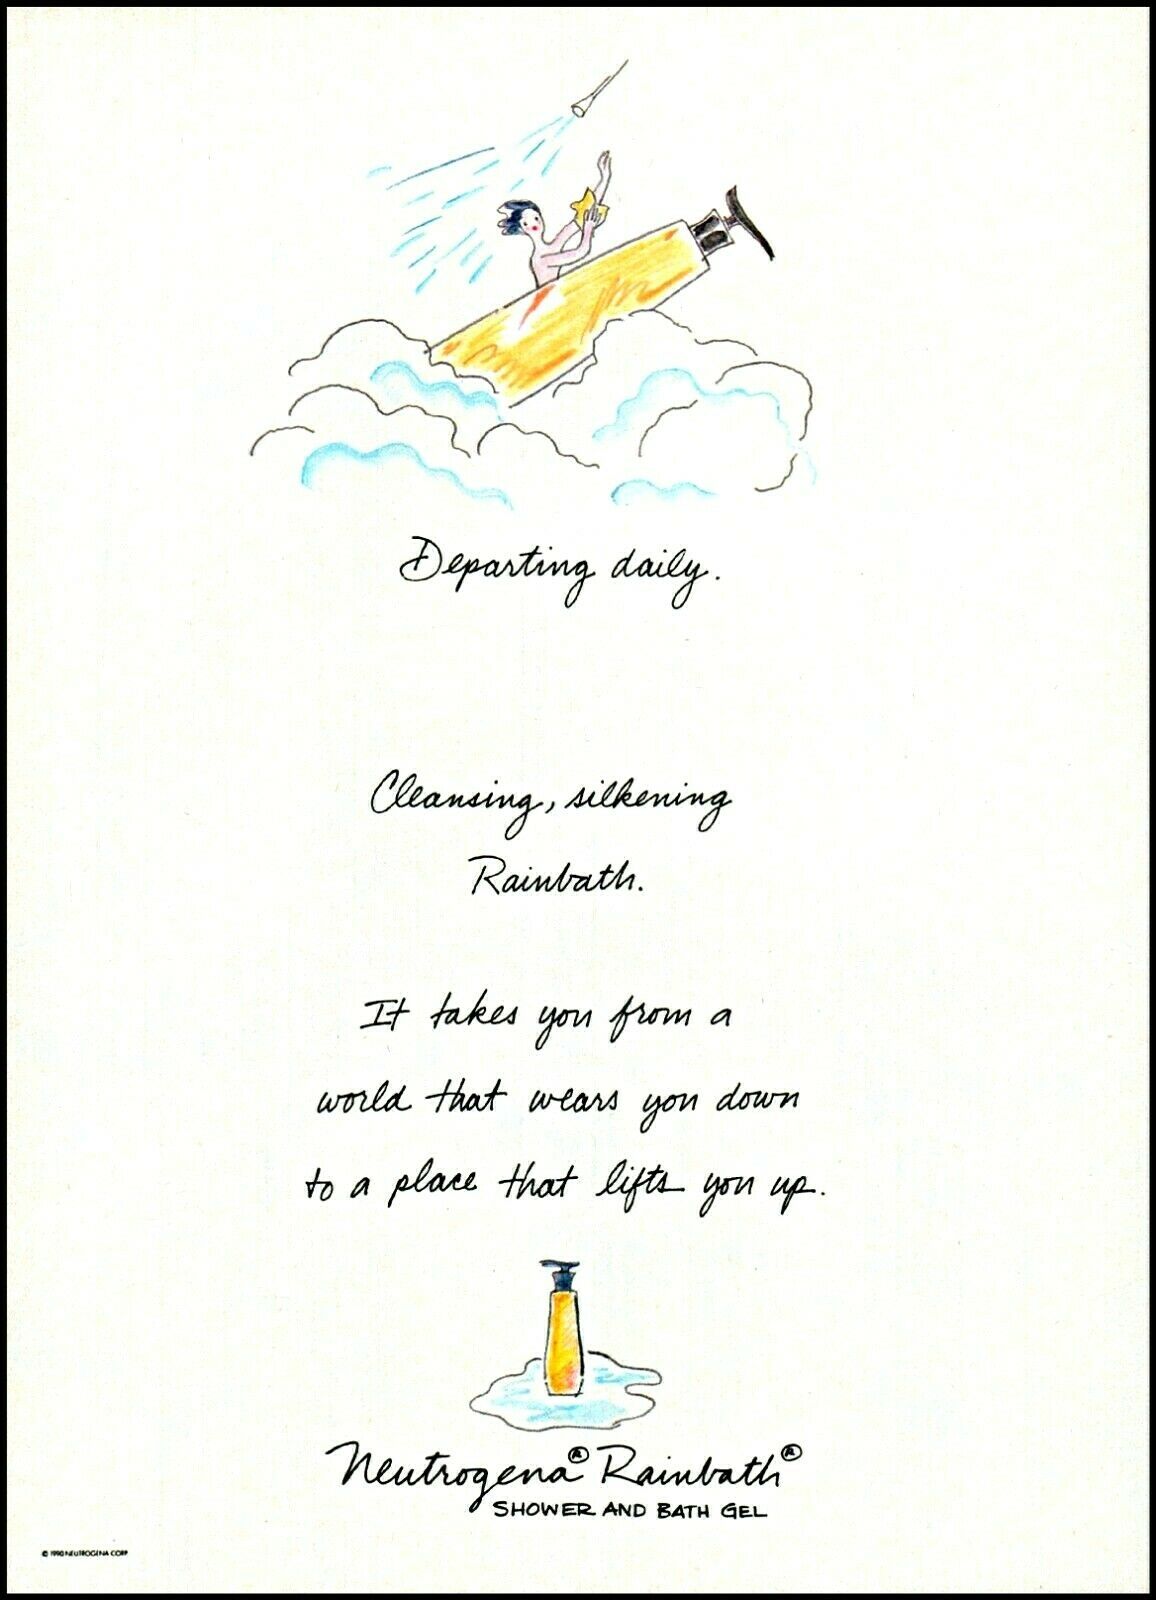 Departing daily.
Cleansing, silkening
Rainbath.
It takes you from a
world that wears you down
to a place that lifts you up.
Neutrogena® Rainbath®
SHOWER AND BATH GEL
© 1990 NEUTROGENA CORP